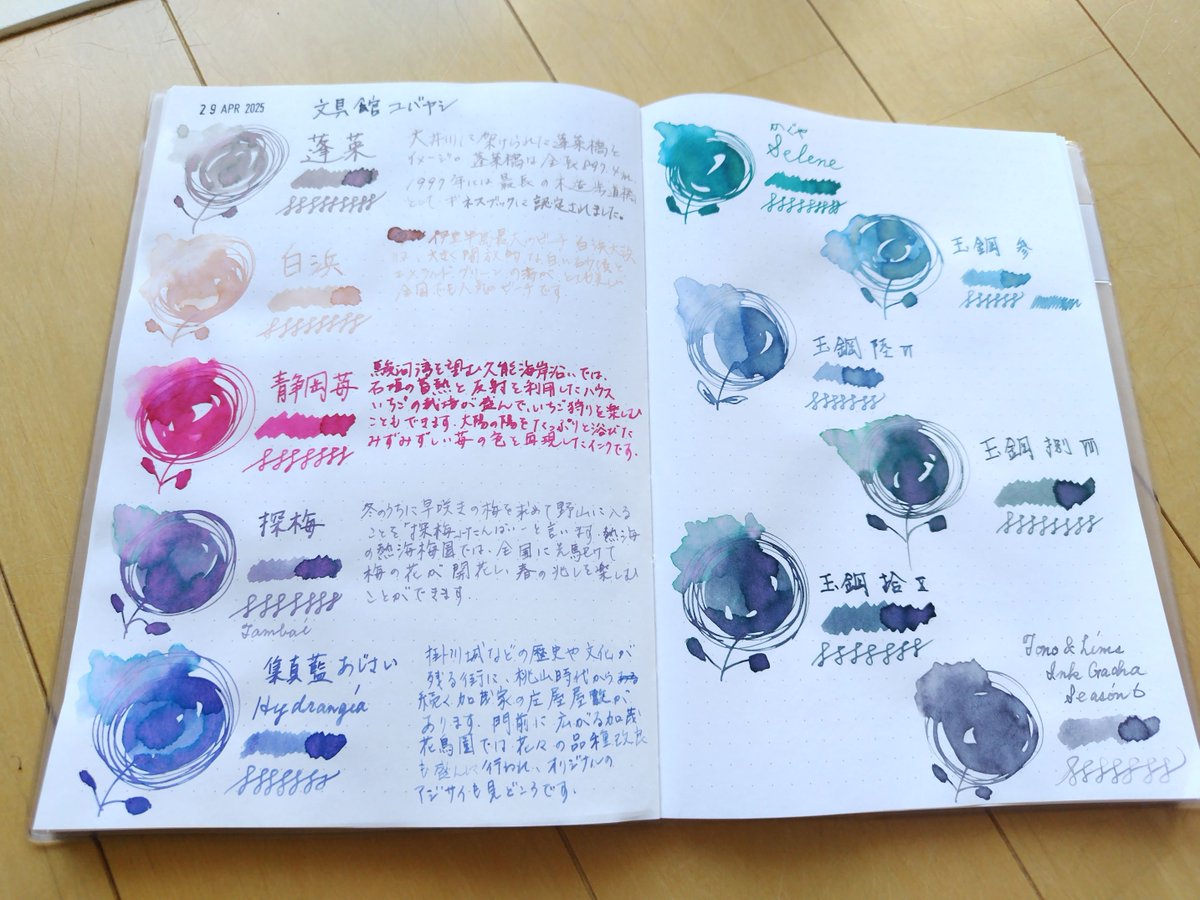 29 APR 2025
文具館コバヤシ
蓬莱
大井川に架けられた蓬莱橋を
イメージ。蓬莱橋は全長897.4m、
1997年には最長の木造歩道橋
として、ギネスブックに認定されました。
白浜
伊豆半島最大のビーチ 白浜大浜
は、大きく開放的な白い砂浜と
エメラルドグリーンの海が、とても美しい
全国でも人気のビーチです
静岡苺
駿河湾を望む久能海岸沿いでは、
石垣の自熱と反射を利用したハウス
いちごの栽培が盛んで、いちご狩りを楽しむ
こともできます。太陽の陽をたっぷりと浴びた
みずみずしい苺の色を再現したインクです。
探梅
Tambai
冬のうちに早咲きの梅を求めて野山に入る
ことを「探梅」(たんばい)と言います。熱海
の熱海梅園では、全国に先駆けて
梅の花が開花し、春の兆しを楽しむ
ことができます.
集真藍 あじさい
Hydrangia
掛川城などの歴史や文化が
残る街に、桃山時代から
続く加茂家の庄屋屋敷が
あります。門前に広がる加茂
花鳥園では花々の品種改良
も盛んに行われ、オリジナルの
アジサイも見どころです.
かぐや
Selene
玉鋼 参
玉鋼 陸 VI
玉鋼 捌 VIII
玉鋼 拾 X
Tono & Lims
Ink Gacha
Season 6